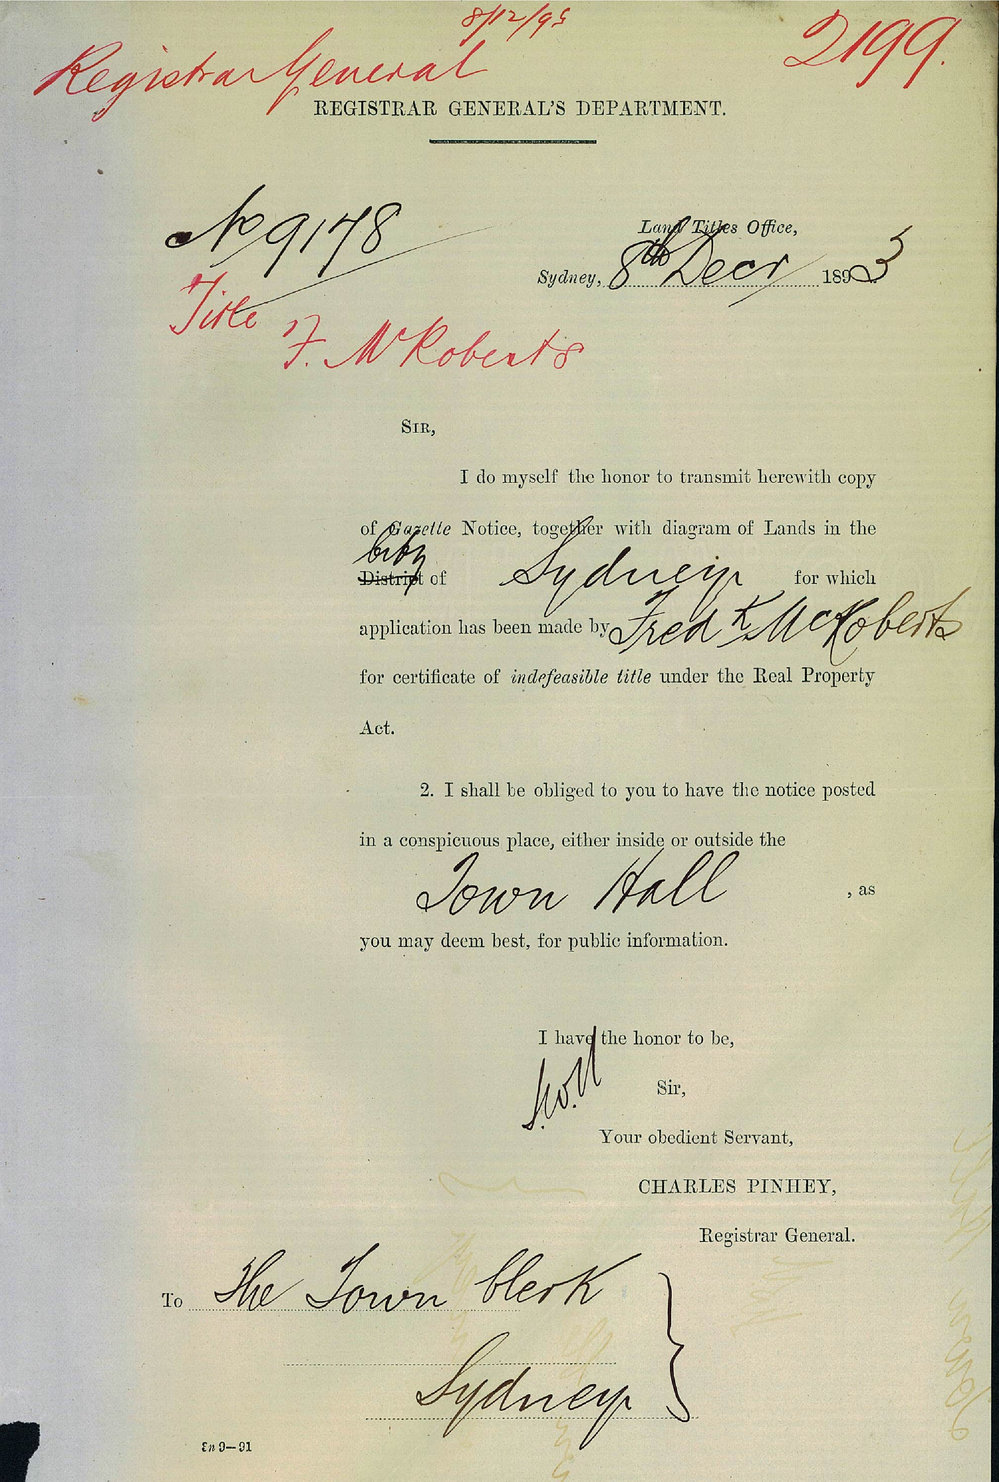 8/12/93
Registrar General
2199.
REGISTRAR GENERAL'S DEPARTMENT.
No 9178
Land Titles Office,
Sydney, 8th Decr 1893
Title
F. McRoberts
SIR,
I do myself the honor to transmit herewith copy
of Gazette Notice, together with diagram of Lands in the
City
District of Sydney for which
application has been made by Fredk McRoberts
for certificate of indefeasible title under the Real Property
Act.
2. I shall be obliged to you to have the notice posted
in a conspicuous place, either inside or outside the
Town Hall , as
you may deem best, for public information.
I have the honor to be,
Sir,
Your obedient Servant,
CHARLES PINHEY,
Registrar General.
To The Town Clerk
Sydney
9—91